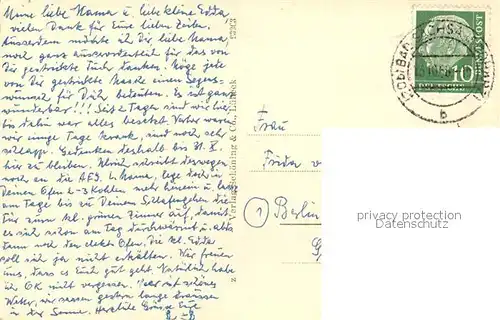 Meine liebe Mama u. liebe kleine Edda,
vielen Dank für Eure lieben Zeilen.
Ausserdem möchte ich Dir liebe Mama,
noch ganz ausserordentlich für das von
Dir gestrickte Tuch danken. Möge jede
von Dir gestrickte Masche einen Segens-
wunsch für Dich bedeuten. Es ist ganz
wunderbar!!! Seit 2 Tagen sind wir hier
bis dahin war alles besetzt. Vorher waren
wir einige Tage krank, sind noch sehr
schlapp. Gedenken deshalb bis 31. X.
hier zu bleiben. schreibt deswegen
noch an die L. Mama, lege doch in
Deinen Ofen 2-3 Kohlen mehr hinein u. lass
am Tage bis zu Deinem Schlafengehen die
Tür zum kl. grünen Zimmer auf, damit
es sich schon am Tag durchwärmt u. abds.
dann noch den elektr. Ofen. Die kl. Edda
soll sich ja nicht erkälten. Wir freuen
uns, dass es Euch gut geht. Natürlich habe
ich nicht vergessen. Hier ist schönes
Wetter, wir sassen gestern lange draussen
in der Sonne. Herzliche Grüsse Eure
Verlag Schöning & Co., Lübeck
10
DEUTSCHE
BUNDESPOST
b
Frau
Frida v
1 Berlin
privacy protection
ansichtskarten-lexikon.de